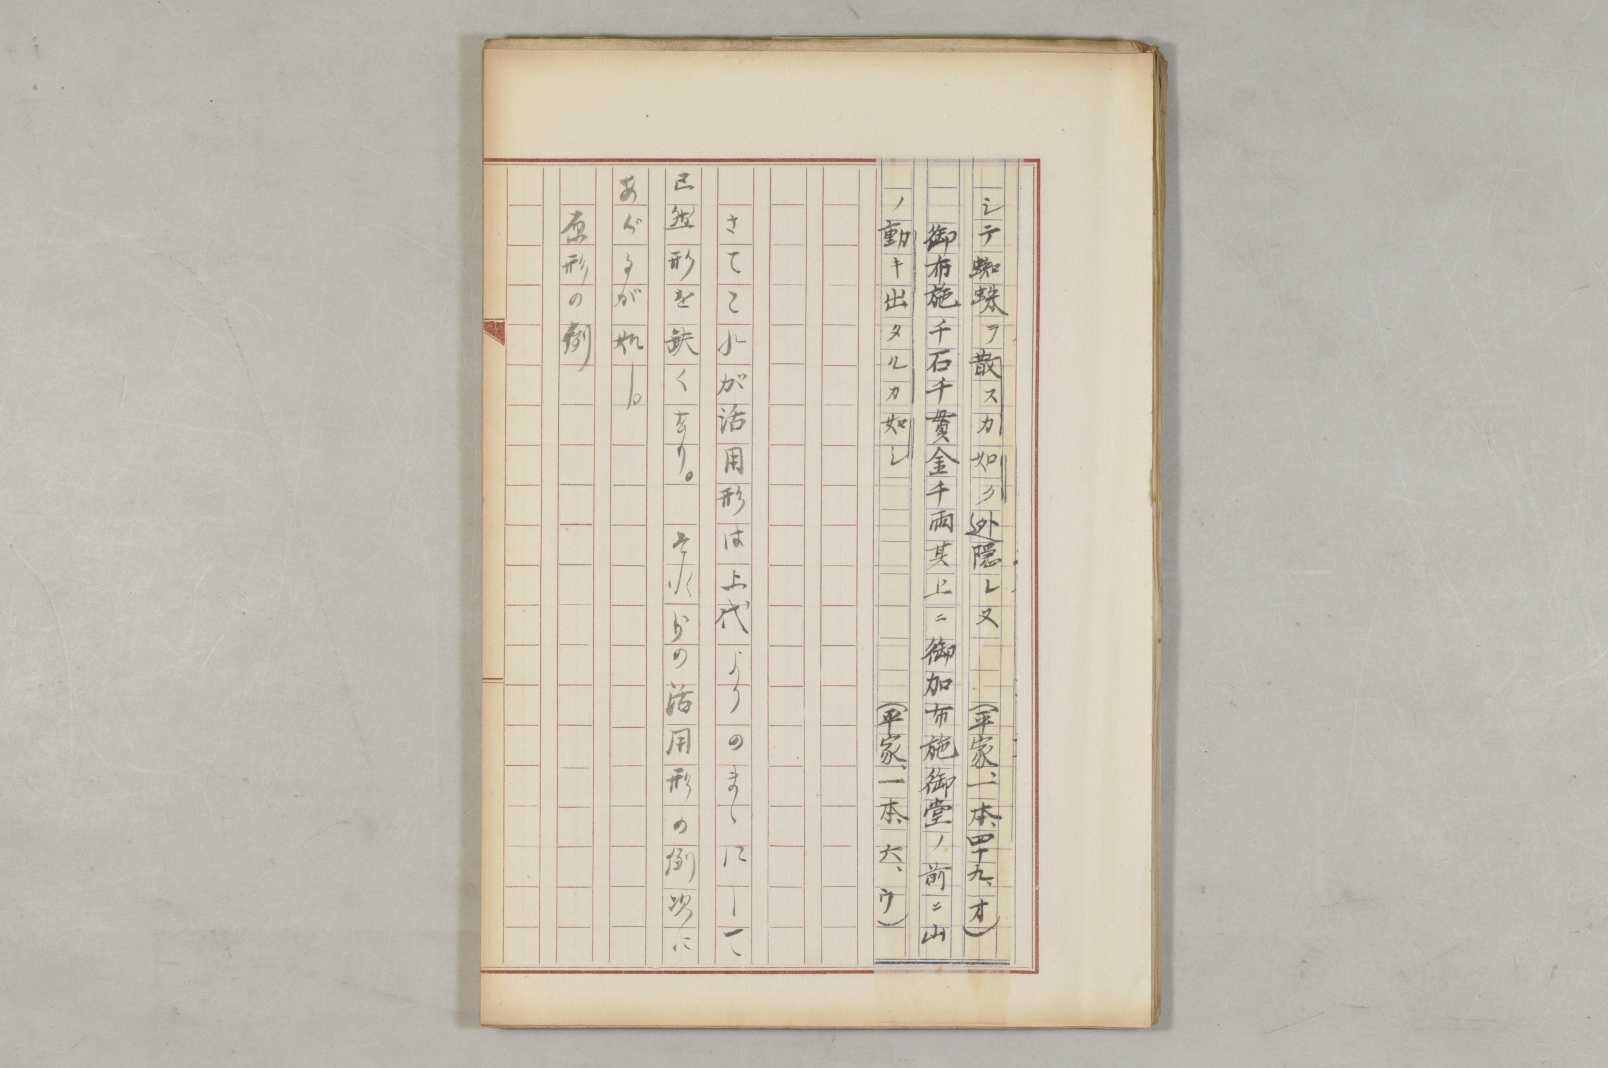 シテ蜘蛛ヲ散スカ如ク迯隠レ又　（平家、二、本、四十九、オ）
御布施千石千貫金千両其上ニ御加布施御堂ノ前ニ山
ノ動キ出タルカ如シ　（平家、一本、六、ウ）
さてこれが活用形は上代よりのまゝにして
已然形を欠くなり。それらの活用形の例次に
あぐるが如し。
原形の例